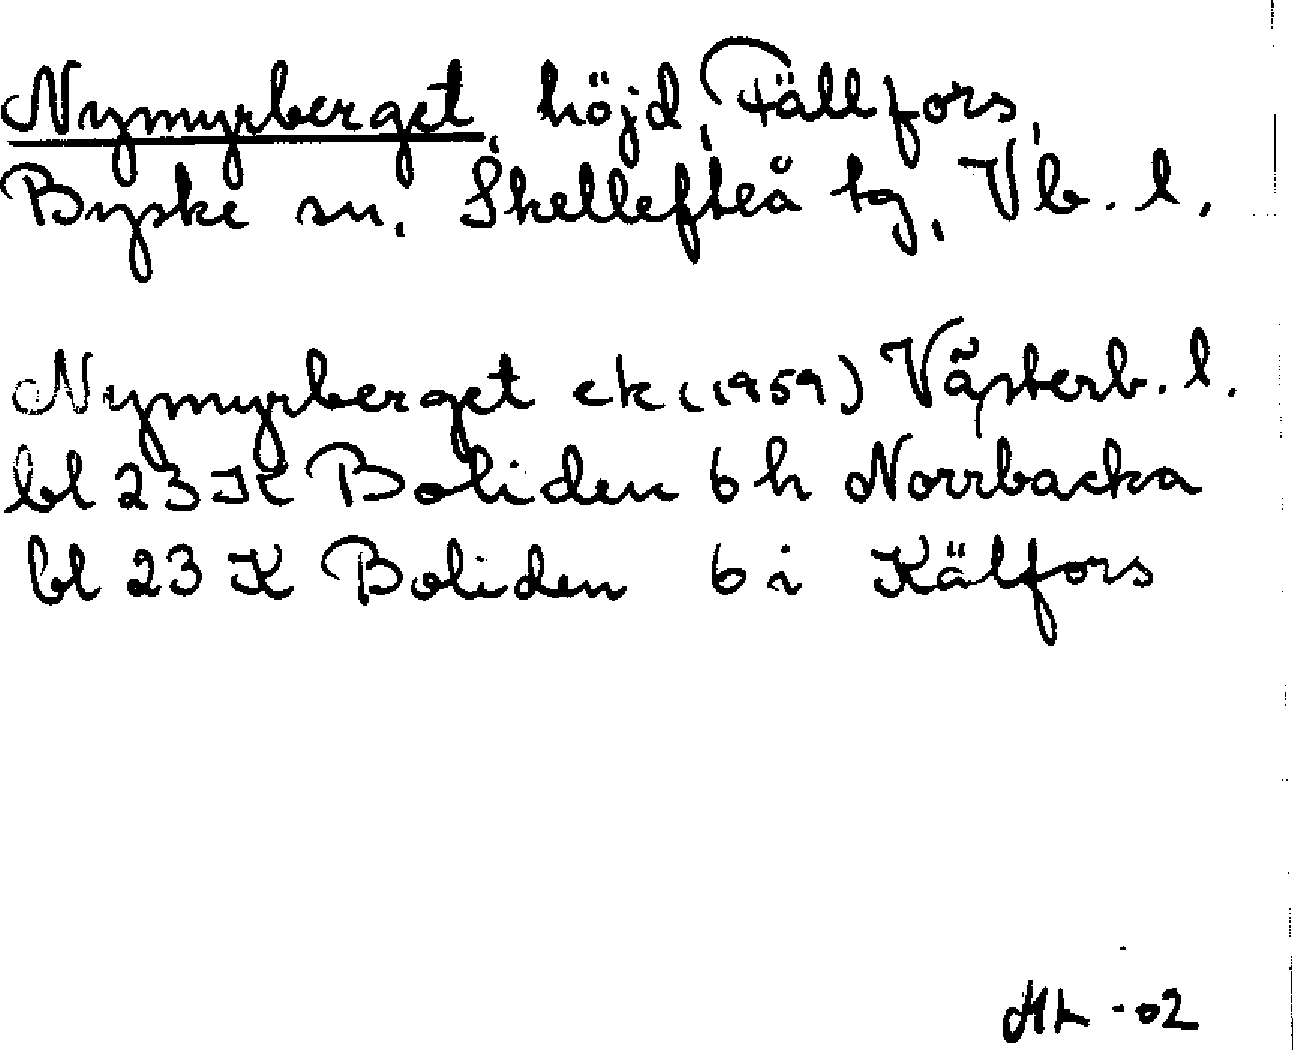 Nymyrberget, höjd, Fällfors,
Byske sn, Skellefteå tg, Vb. l.
Nymyrberget ek (1959) Västerb. l.
bl 23 K Boliden 6 h Norrbacka
bl 23 K Boliden 6 i Kälfors
ML -02